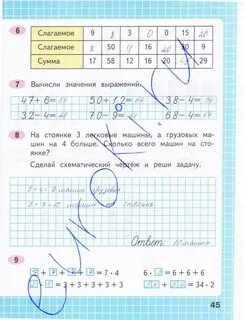 6 Слагаемое 9 8 3 0 0 15 20
Слагаемое 8 50 9 16 20 30 9
Сумма 17 58 12 16 20 45 29
7 Вычисли значения выражений.
47+6= 50+12= 38-4=34
32-4= 70-9= 68-4=64
8 На стоянке 3 легковые машины, а грузовых ма-
шин на 4 больше. Сколько всего машин на сто-
янке?
Сделай схематический чертёж и реши задачу.
3+4=7 машин грузовых
3+7=10 машин на стоянке
Ответ: 10 машин
9
= 7 · 4 6 · = 6 + 6 + 6
= 3+3+3+3+3 = 34 · 2
45